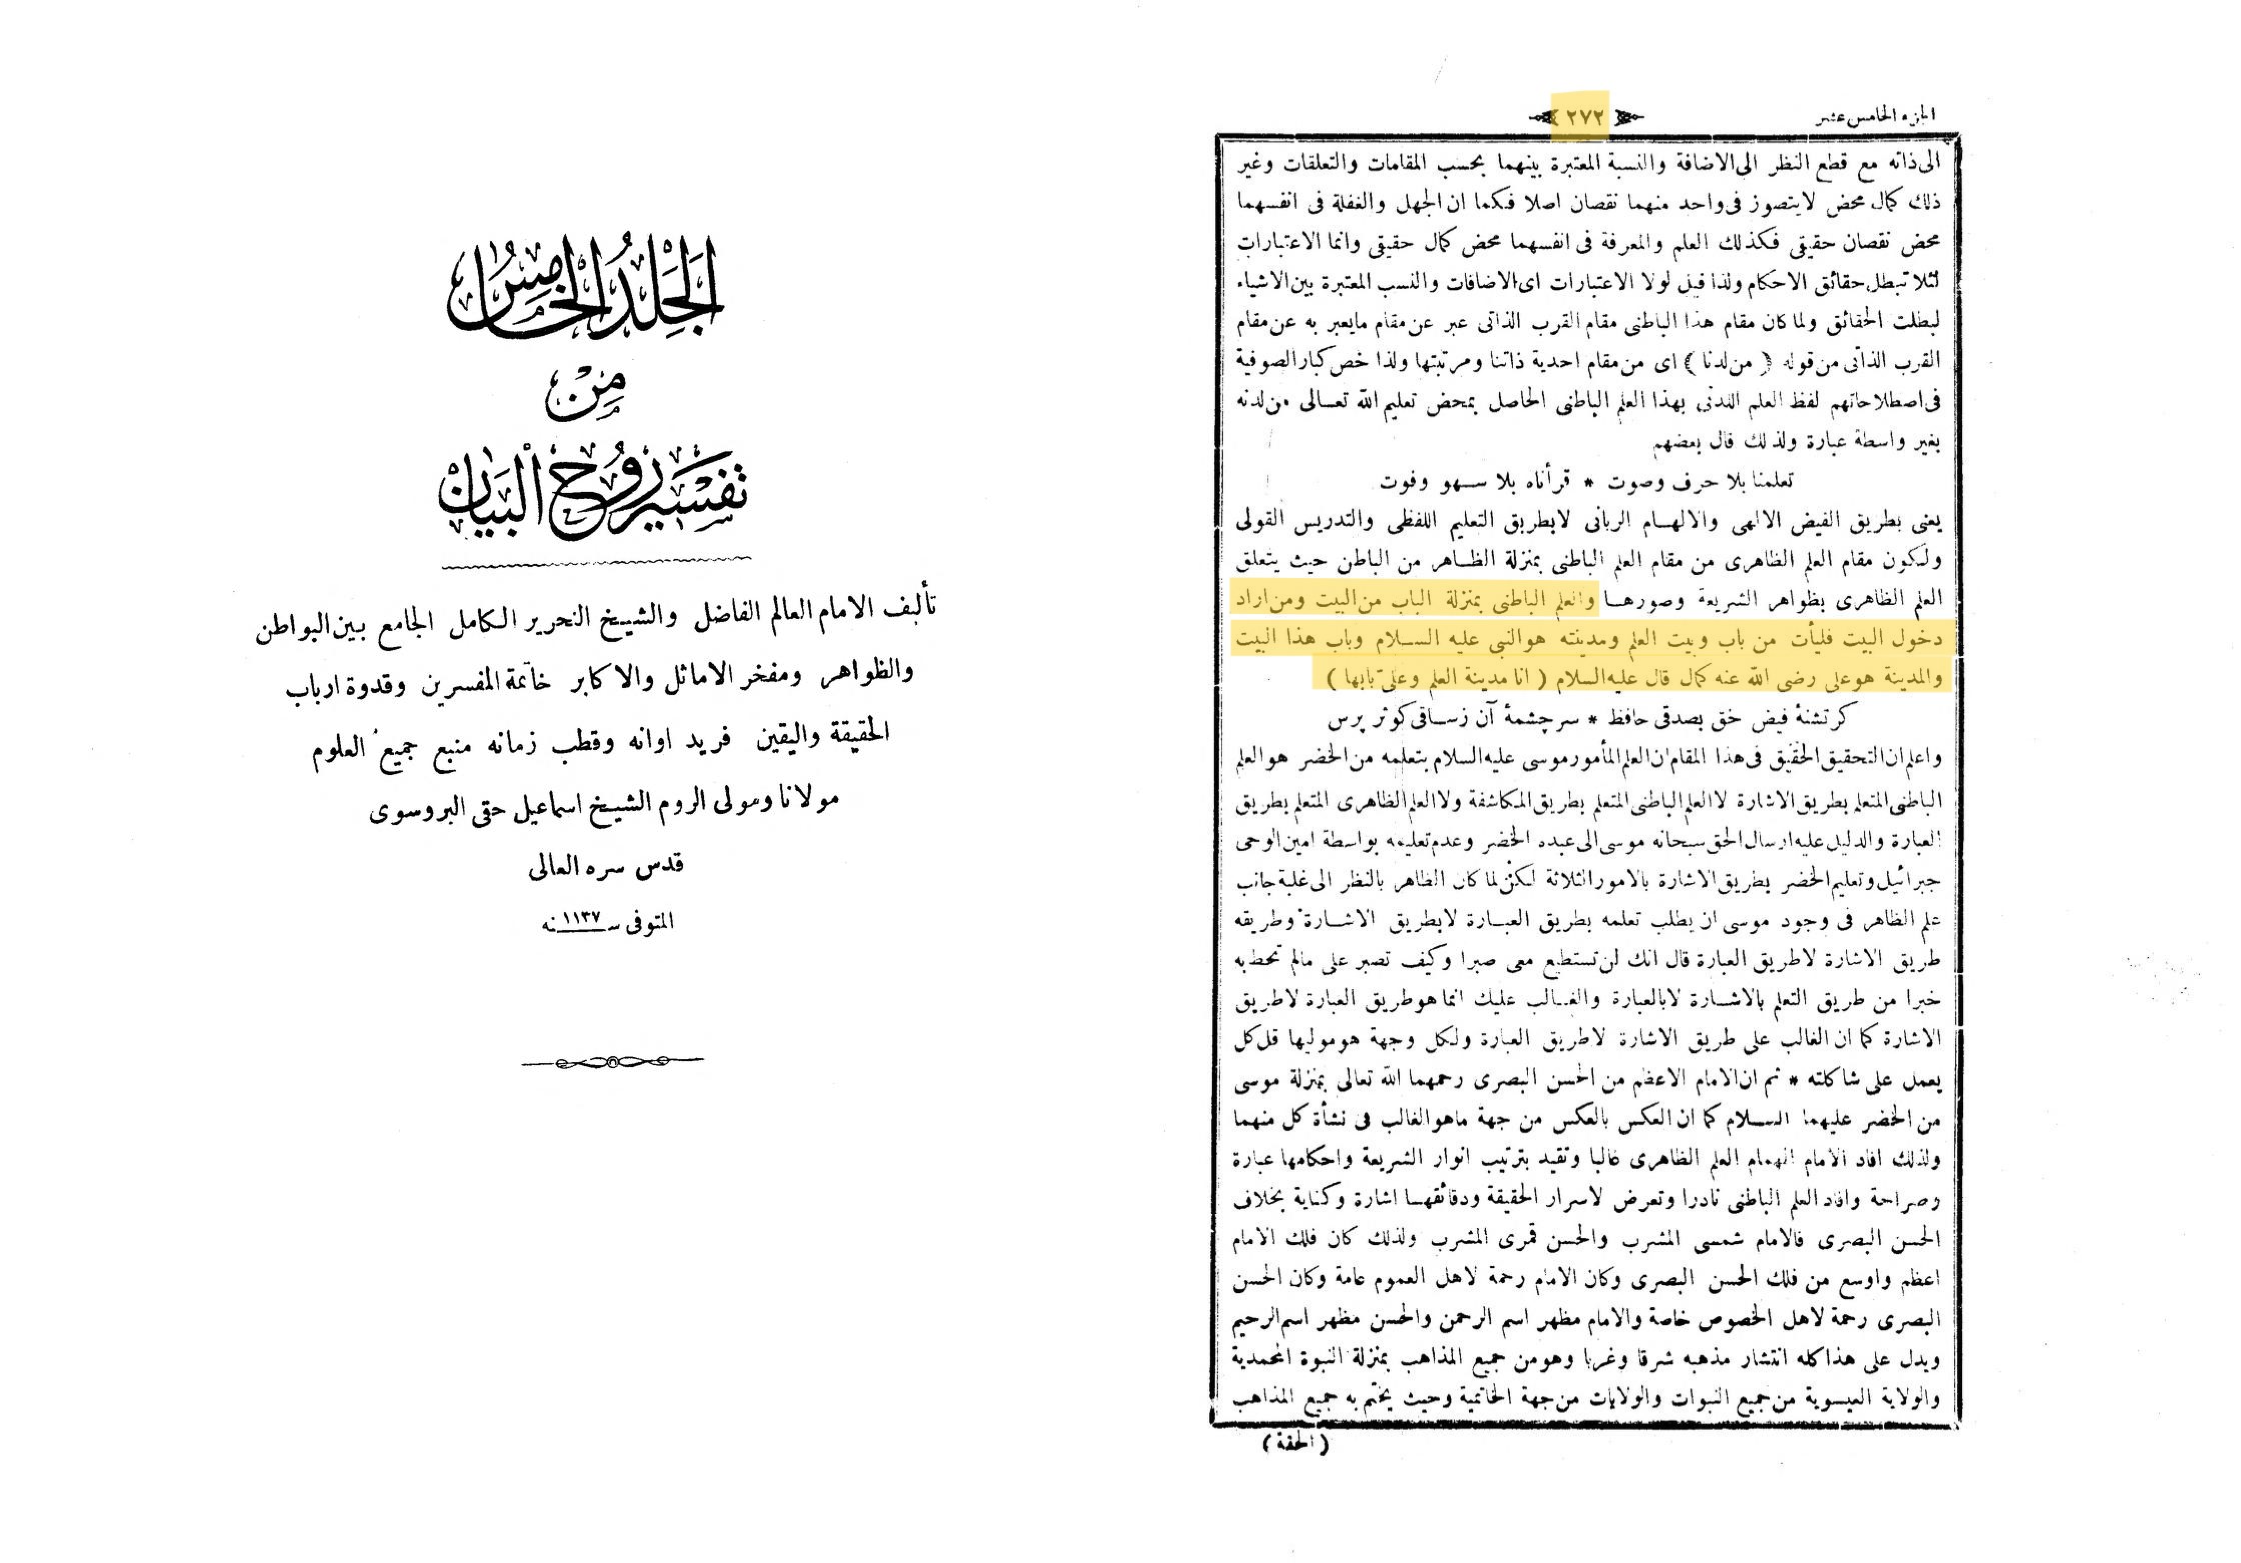 الجلد الخامس
من
تفسير روح البيان
تأليف الامام العالم الفاضل والشيخ النحرير الكامل الجامع بين البواطن
والظواهر ومفخر الاماثل والاكابر خاتمة المفسرين وقدوة ارباب
الحقيقة واليقين فريد اوانه وقطب زمانه منبع جميع العلوم
مولانا ومولى الروم الشيخ اسماعيل حقى البروسوى
قدس سره العالى
المتوفى سنه ١١٣٧
الجزء الخامس عشر
٢٧٢
الى ذاته مع قطع النظر الى الاضافة والنسبة المعتبرة بينهما بحسب المقامات والتعلقات وغير
ذلك كمال محض لايتصور فى واحد منهما نقصان اصلا فكما ان الجهل والغفلة فى انفسهما
محض نقصان حقيقى فكذلك العلم والمعرفة فى انفسهما محض كمال حقيقى وانما الاعتبارات
لئلا تبطل حقائق الاحكام ولذا قيل لولا الاعتبارات اى الاضافات والنسب المعتبرة بين الاشياء
لبطلت الحقائق ولما كان مقام هذا الباطنى مقام القرب الذاتى عبر عن مقام مايعبر به عن مقام
القرب الذاتى من قوله ( من لدنا ) اى من مقام احدية ذاتنا ومرتبتها ولذا خص كبار الصوفية
فى اصطلاحاتهم لفظ العلم اللدنى بهذا العلم الباطنى الحاصل بمحض تعليم الله تعالى من لدنه
بغير واسطة عبارة ولذلك قال بعضهم
تعلمنا بلا حرف وصوت * قرأناه بلا سهو وفوت
يعنى بطريق الفيض الالهى والالهام الربانى لابطريق التعليم اللفظى والتدريس القولى
ولكون مقام العلم الظاهرى من مقام العلم الباطنى بمنزلة الظاهر من الباطن حيث يتعلق
العلم الظاهرى بظواهر الشريعة وصورها والعلم الباطنى بمنزلة الباب من البيت ومن اراد
دخول البيت فليأت من باب وبيت العلم ومدينته هو النبى عليه السلام وباب هذا البيت
والمدينة هو على رضى الله عنه كمال قال عليه السلام ( انا مدينة العلم وعلى بابها )
كرتشنهٔ فيض حق بصدقى حافظ * سرچشمهٔ آن زساقى كوثر پرس
واعلم ان التحقيق الحقيق فى هذا المقام ان العلم المأمور موسى عليه السلام بتعلمه من الخضر هو العلم
الباطنى المتعلم بطريق الاشارة لا العلم الباطنى المتعلم بطريق المكاشفة ولا العلم الظاهرى المتعلم بطريق
العبارة والدليل عليه ارسال الحق سبحانه موسى الى عبده الخضر وعدم تعليمه بواسطة امين الوحى
جبرائيل وتعليم الخضر بطريق الاشارة بالامور الثلاثة لكن لما كان الظاهر بالنظر الى غلبة جانب
علم الظاهر فى وجود موسى ان يطلب تعلمه بطريق العبارة لابطريق الاشارة وطريقه
طريق الاشارة لا طريق العبارة قال انك لن تستطيع معى صبرا وكيف تصبر على مالم تحط به
خبرا من طريق التعلم بالاشارة لابالعبارة والغالب عليك انما هو طريق العبارة لا طريق
الاشارة كما ان الغالب على طريق الاشارة لاطريق العبارة ولكل وجهة هو موليها قل كل
يعمل على شاكلته * ثم ان الامام الاعظم من الحسن البصرى رحمهما الله تعالى بمنزلة موسى
من الخضر عليهما السلام كما ان العكس بالعكس من جهة ماهو الغالب فى نشأة كل منهما
ولذلك افاد الامام الهمام العلم الظاهرى غالبا وتقيد بترتيب انوار الشريعة واحكامها عبارة
وصراحة وافاد العلم الباطنى نادرا وتعرض لاسرار الحقيقة ودقائقها اشارة وكناية بخلاف
الحسن البصرى فالامام شمسى المشرب والحسن قمرى المشرب ولذلك كان فلك الامام
اعظم واوسع من فلك الحسن البصرى وكان الامام رحمة لاهل العموم عامة وكان الحسن
البصرى رحمة لاهل الخصوص خاصة والامام مظهر اسم الرحمن والحسن مظهر اسم الرحيم
ويدل على هذا كله انتشار مذهبه شرقا وغربا وهو من جميع المذاهب بمنزلة النبوة المحمدية
والولاية العيسوية من جميع النبوات والولايات من جهة الخاتمية وحيث يختم به جميع المذاهب
( الحقة )